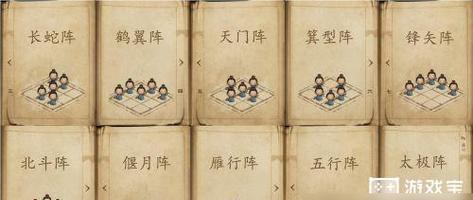 长蛇阵
鹤翼阵
天门阵
箕型阵
锋矢阵
三
四
五
六
七
北斗阵
偃月阵
雁行阵
五行阵
太极阵
游戏宝